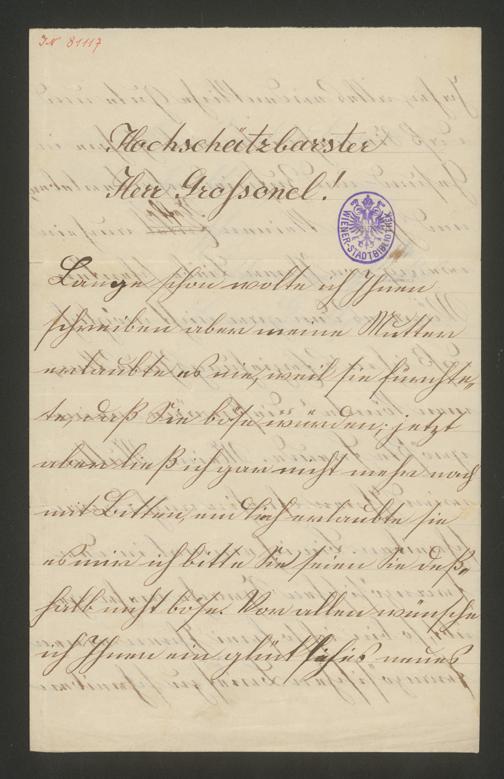 JN 81117
Hochschätzbarster
Herr Grossonel!
WIENER-STADTBIBLIOTHEK
Lange schon wolte ich Ihnen
schreiben aber meine Mutter
erlaubte es nie, weil sie fürchte-
te, daß Sie böse würden; jetzt
aber ließ ich gar nicht mehr nach
mit Bitten, endlich erlaubte sie
es mir ich bitte Sie seien Sie deß-
halb nicht böse. Vor allen wünsche
ich Ihnen ein glückliches neues